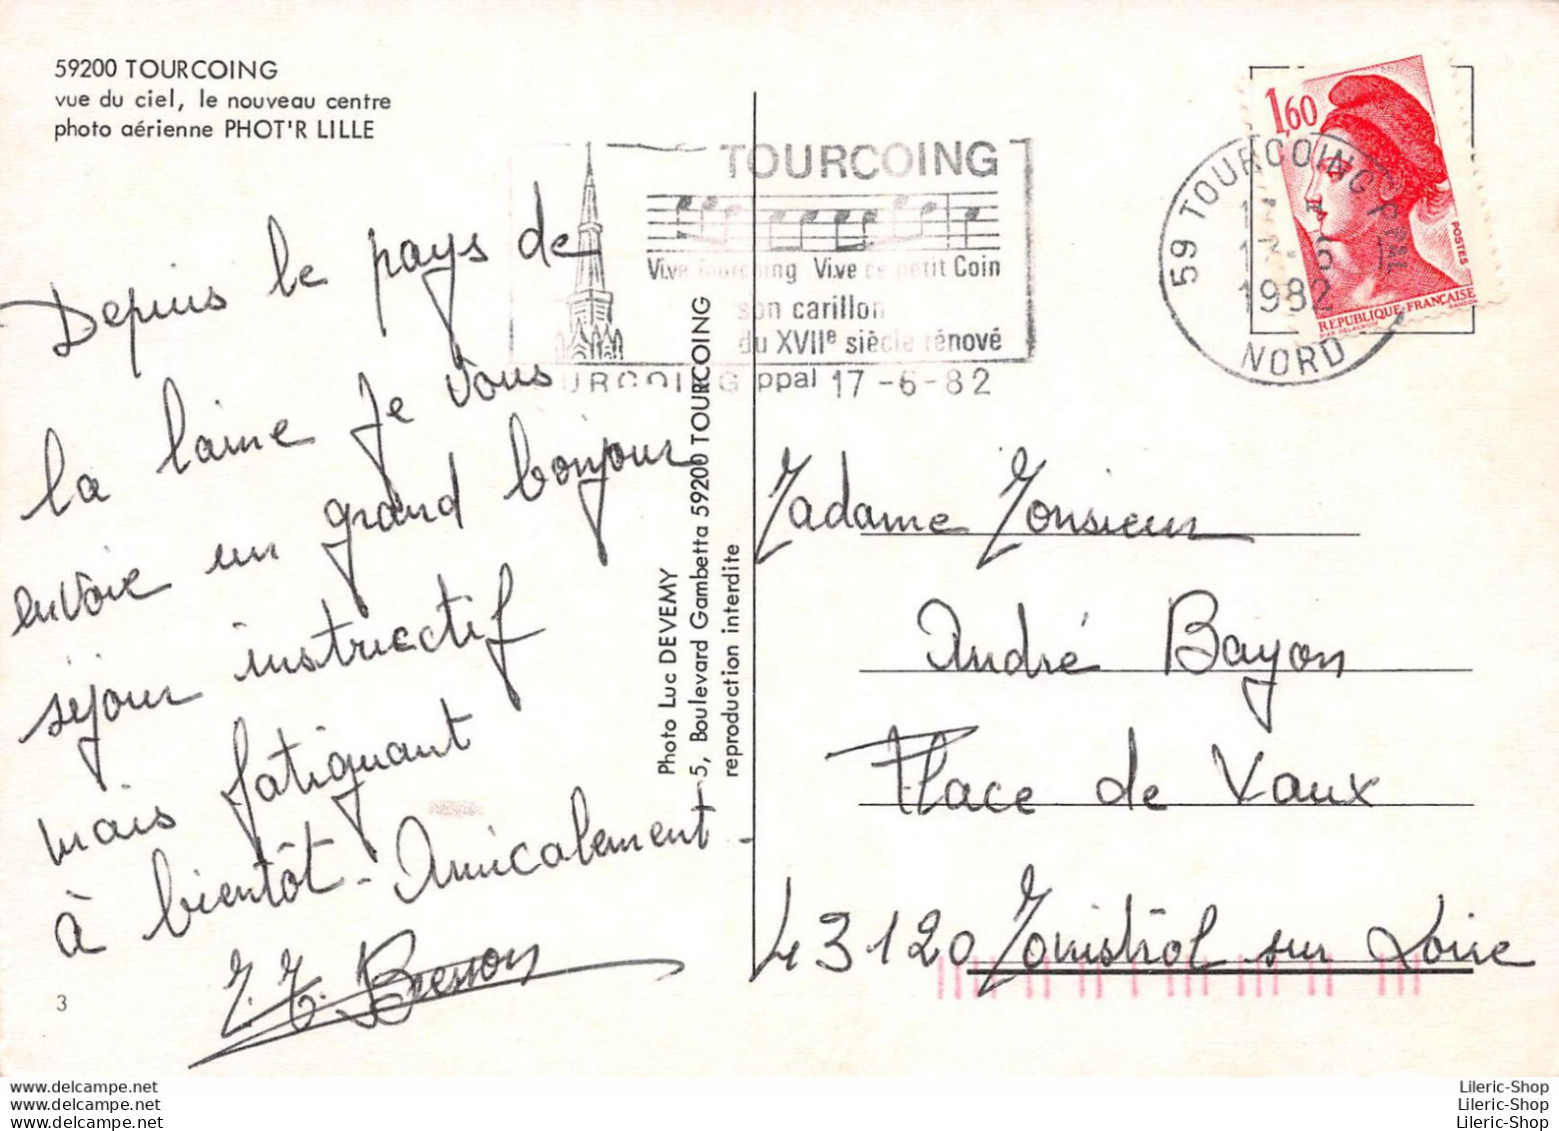 59200 TOURCOING
vue du ciel, le nouveau centre
photo aérienne PHOT'R LILLE
TOURCOING
Vive Tourcoing Vive ce petit Coin
son carillon
du XVIIe siècle rénové
TOURCOING ppal 17-6-82
59 TOURCOING PPAL
17-6
1982
NORD
1,60
POSTES
REPUBLIQUE-FRANÇAISE
Depuis le pays de
la laine je vous
envoie un grand bonjour
séjour instructif
mais fatiguant
à bientôt - Amicalement -
Besson
3
Photo Luc DEVEMY
5, Boulevard Gambetta 59200 TOURCOING
reproduction interdite
Madame Monsieur
André Bayon
Place de Vaux
43120 Monistrol sur Loire
www.delcampe.net
une affranchie
postcard.man
Lileric-Shop
Lileric-Shop
Lileric-Shop